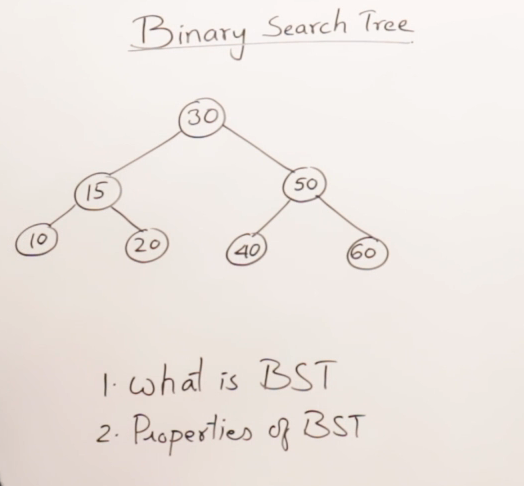 Binary Search Tree
30
15 50
10 20 40 60
1. What is BST
2. Properties of BST